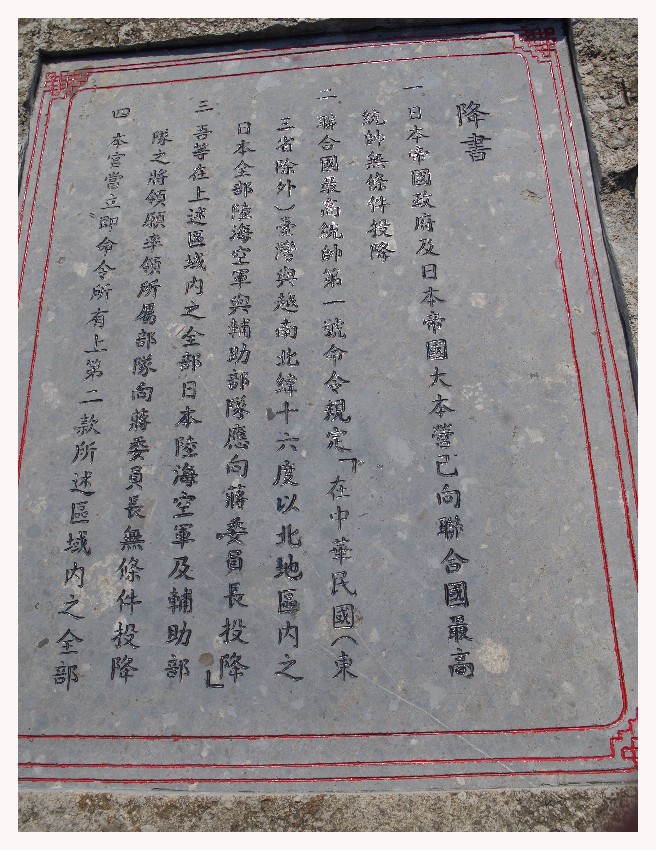 降書
一 日本帝國政府及日本帝國大本營已向聯合國最高
統帥無條件投降
二 聯合國最高統帥第一號命令規定「在中華民國(東
三省除外)臺灣與越南北緯十六度以北地區内之
日本全部陸海空軍與輔助部隊應向蔣委員長投降」
三 吾等在上述區域内之全部日本陸海空軍及輔助部
隊之將領願率領所屬部隊向蔣委員長無條件投降
四 本官當立即命令所有上第二款所述區域内之全部